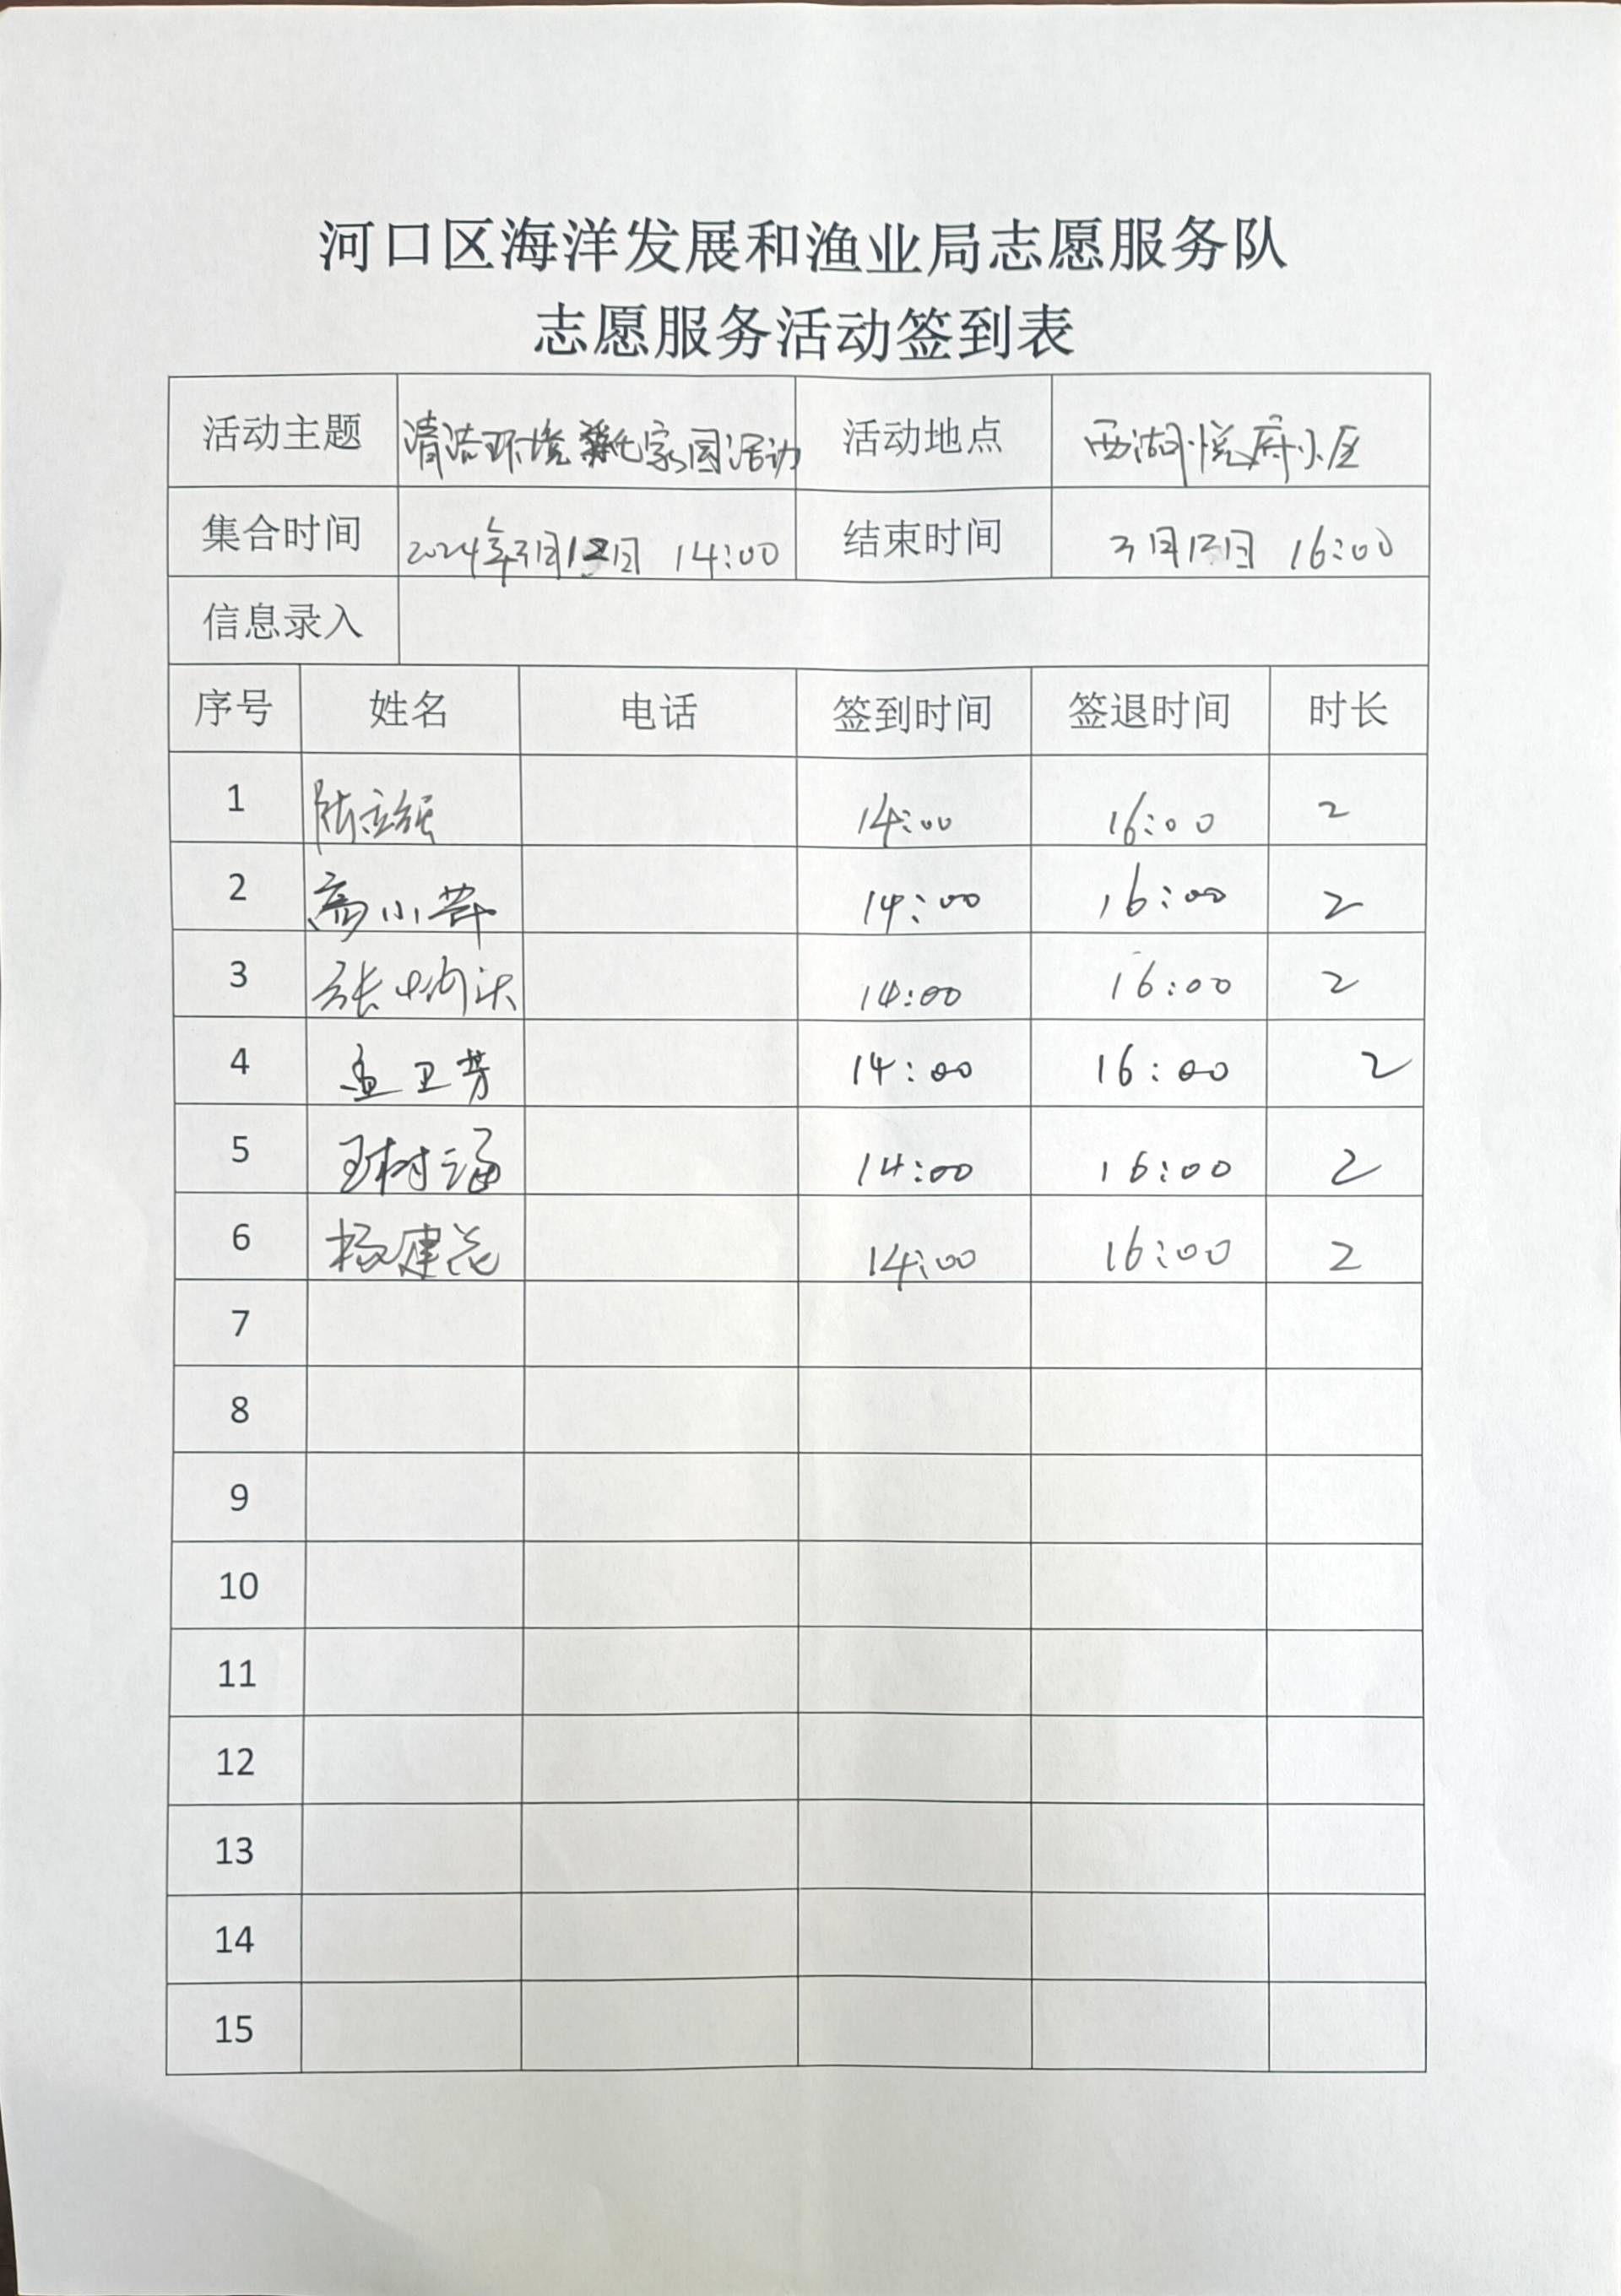 河口区海洋发展和渔业局志愿服务队
志愿服务活动签到表
活动主题 清洁环境 美化家园活动 活动地点 西湖悦府小区
集合时间 2024年3月12日 14:00 结束时间 3月12日 16:00
信息录入
序号 姓名 电话 签到时间 签退时间 时长
1 14:00 16:00 2
2 高小 14:00 16:00 2
3 张 14:00 16:00 2
4 孟卫芳 14:00 16:00 2
5 王树海 14:00 16:00 2
6 杨建花 14:00 16:00 2
7
8
9
10
11
12
13
14
15